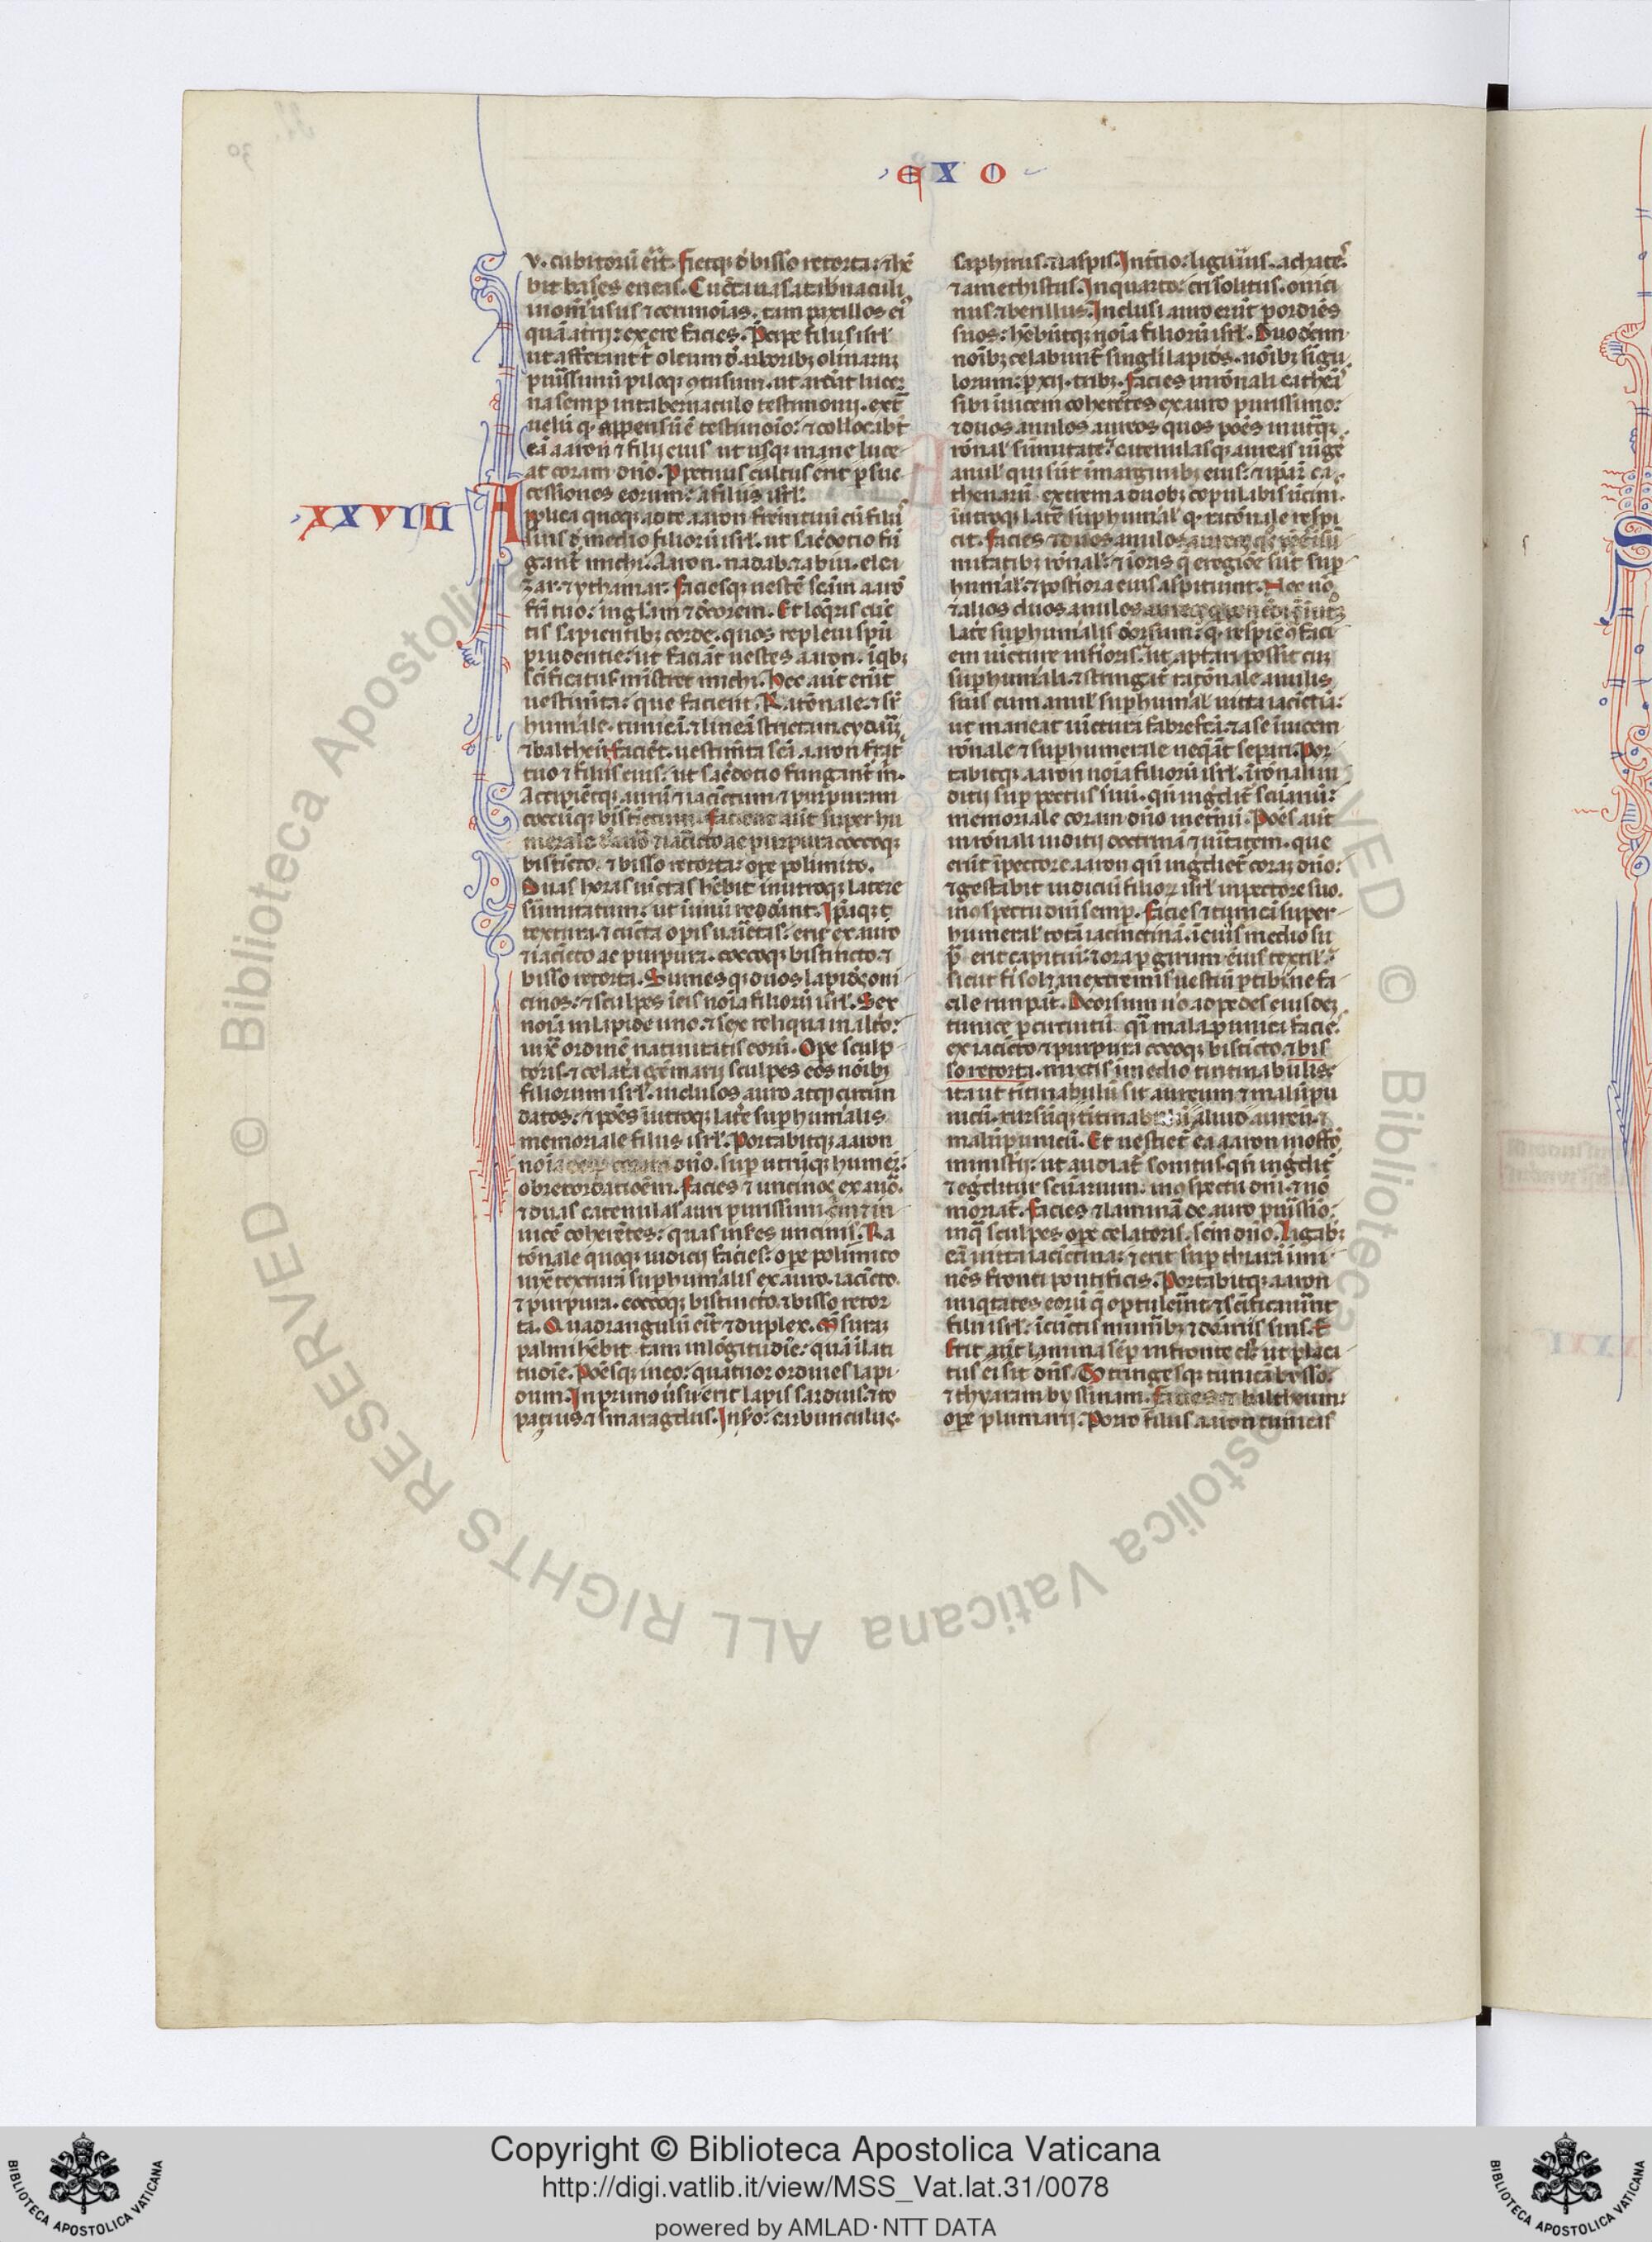 EXO
v. cubitorum erit. fietque de bisso retorta: et habe
bit bases eneas. Cuncta uasa tabernaculi
in omnes usus et cerimonias. tam paxillos ei
quam atrii: ex ere facies. Precipe filiis isrl
ut afferant tibi oleum de arboribus oliuarum
purissimum piloque contusum. ut ardeat lucer
na semper in tabernaculo testimonii. extra
uelum quod appensum est testimonio: et collocabunt
eam aaron et filii eius ut usque mane luce
at coram dno. Perpetuus cultus erit per suc
cessiones eorum: a filiis isrl.
XXVIII
Applica quoque ad te aaron fratrem tuum cum filiis
suis de medio filiorum isrl. ut sacerdotio fun
gantur michi. Aaron. nadab. et abiu. elea
zar. et ythamar. faciesque uestem scam aaron
fri tuo: in gliam et decorem. Et loqueris cunc
tis sapientibus corde. quos repleui spu
prudentie: ut faciant uestes aaron. in quibus
scificatus ministret michi. Hec aut erunt
uestimenta: que facient. Rationale. et super
humale. tunicam et lineam strictam. cydarim
et baltheum. facient uestimenta sca aaron fratri
tuo et filiis eius: ut sacerdotio fungantur m.
Accipientque aurum et iacinctum et purpuram
coccumque bistinctum. facient aut super hu
merale de auro et iacincto ac purpura coccoque
bistincto. et bisso retorta: opere polimito.
Duas horas iunctas habebit in utroque latere
summitatum: ut in unum redeant. Ipsaque
textura. et cuncta operis uarietas: erit ex auro
et iacincto ac purpura. coccoque bistincto. et
bisso retorta. Sumesque duos lapides oni
cinos: et sculpes in eis noia filiorum isrl. Sex
noia in lapide uno. et sex reliqua in altero:
iuxta ordinem natiuitatis eorum. Opere sculp
toris. et celatura gemmarii sculpes eos noibus
filiorum isrl. inclusos auro atque circun
datos: et pones in utroque latere superhumalis
memoriale filiis isrl. Portabitque aaron
noia eorum coram dno. super utrumque humerum:
ob recordationem. facies et uncinos ex auro.
et duas catenulas auri purissimi sibi in
uicem coherentes: quas inseres uncinis. Ra
tionale quoque iudicii facies: opere polimito
iuxta texturam superhumalis ex auro. iacincto.
et purpura. coccoque bistincto. et bisso retor
ta. Quadrangulum erit et duplex. Mensuram
palmi habebit tam in longitudine: quam in lati
tudine. Ponesque in eo: quatuor ordines lapi
dum. In primo uersu erit lapis sardius. et to
pazius. et smaragdus. In secundo: carbunculus.
saphirus. et iaspis. In tercio: ligurius. achates.
et amethistus. In quarto: crisolitus. onici
nus. et berillus. Inclusi auro erunt per ordines
suos: habebuntque noia filiorum isrl. Duodecim
noibus celabuntur singuli lapides. noibus singu
lorum: per xii. tribus. facies in rationali cathenas
sibi inuicem coherentes ex auro purissimo:
et duos anulos aureos quos pones in utraque
rationalis summitate. catenulasque aureas iunges
anulis qui sunt in marginibus eius: et ipsarum ca
thenarum extrema duobus copulabis uncinis
in utroque latere superhumalis quod rationale respi
cit. facies et duos anulos aureos quos pones in sum
mitatibus rationalis: et in oris que e regione sunt super
humalis. et posteriora eius aspiciunt. Nec non
et alios duos anulos aureos qui ponendi sunt in utroque
latere superhumalis deorsum: quod respicit contra faci
em iuncture inferioris. ut aptari possit cum
superhumali. et stringatur rationale anulis
suis cum anulis superhumalis uitta iacinctina:
ut maneat iunctura fabrefacta. et a se inuicem
rationale et superhumerale nequeant separari. Por
tabitque aaron noia filiorum isrl. in rationali iu
dicii super pectus suum. quando ingredietur scuarium:
memoriale coram dno in eternum. Pones aut
in rationali iudicii doctrinam et ueritatem. que
erunt in pectore aaron quando ingredietur coram dno:
et gestabit iudicium filiorum isrl in pectore suo.
in conspectu dni semper. facies et tunicam super
humeralis totam iacinctinam. in cuius medio su
pra erit capitium: et ora per girum eius textilis.
sicut fieri solet in extremis uestium partibus. ne fa
cile rumpatur. Deorsum uero ad pedes eiusdem
tunice per circuitum. quasi mala punica facies.
ex iacincto et purpura coccoque bistincto. et bis
so retorta. mixtis in medio tintinabulis:
ita ut tintinabulum sit aureum et malum pu
nicum. rursumque tintinabulum aliud aureum. et
malum punicum. Et uestietur ea aaron in officio
ministerii: ut audiatur sonitus quando ingreditur
et egreditur scuarium. in conspectu dni. et non
moriatur. facies et laminam de auro purissimo:
in qua sculpes opere celatoris. scm dno. Ligabisque
eam uitta iacinctina: et erit super thiaram immi
nens fronti pontificis. Portabitque aaron
iniquitates eorum que optulerunt. et scificauerunt
filii isrl. in cunctis muneribus et donariis suis. E
Erit aut lamina semper in fronte eius ut placa
tus ei sit dns. Stringesque tunicam bysso:
et thyaram byssinam. facies et baltheum:
opere plumarii. Porro filiis aaron tunicas
Copyright © Biblioteca Apostolica Vaticana
http://digi.vatlib.it/view/MSS_Vat.lat.31/0078
powered by AMLAD·NTT DATA
BIBLIOTECA APOSTOLICA VATICANA
BIBLIOTECA APOSTOLICA VATICANA